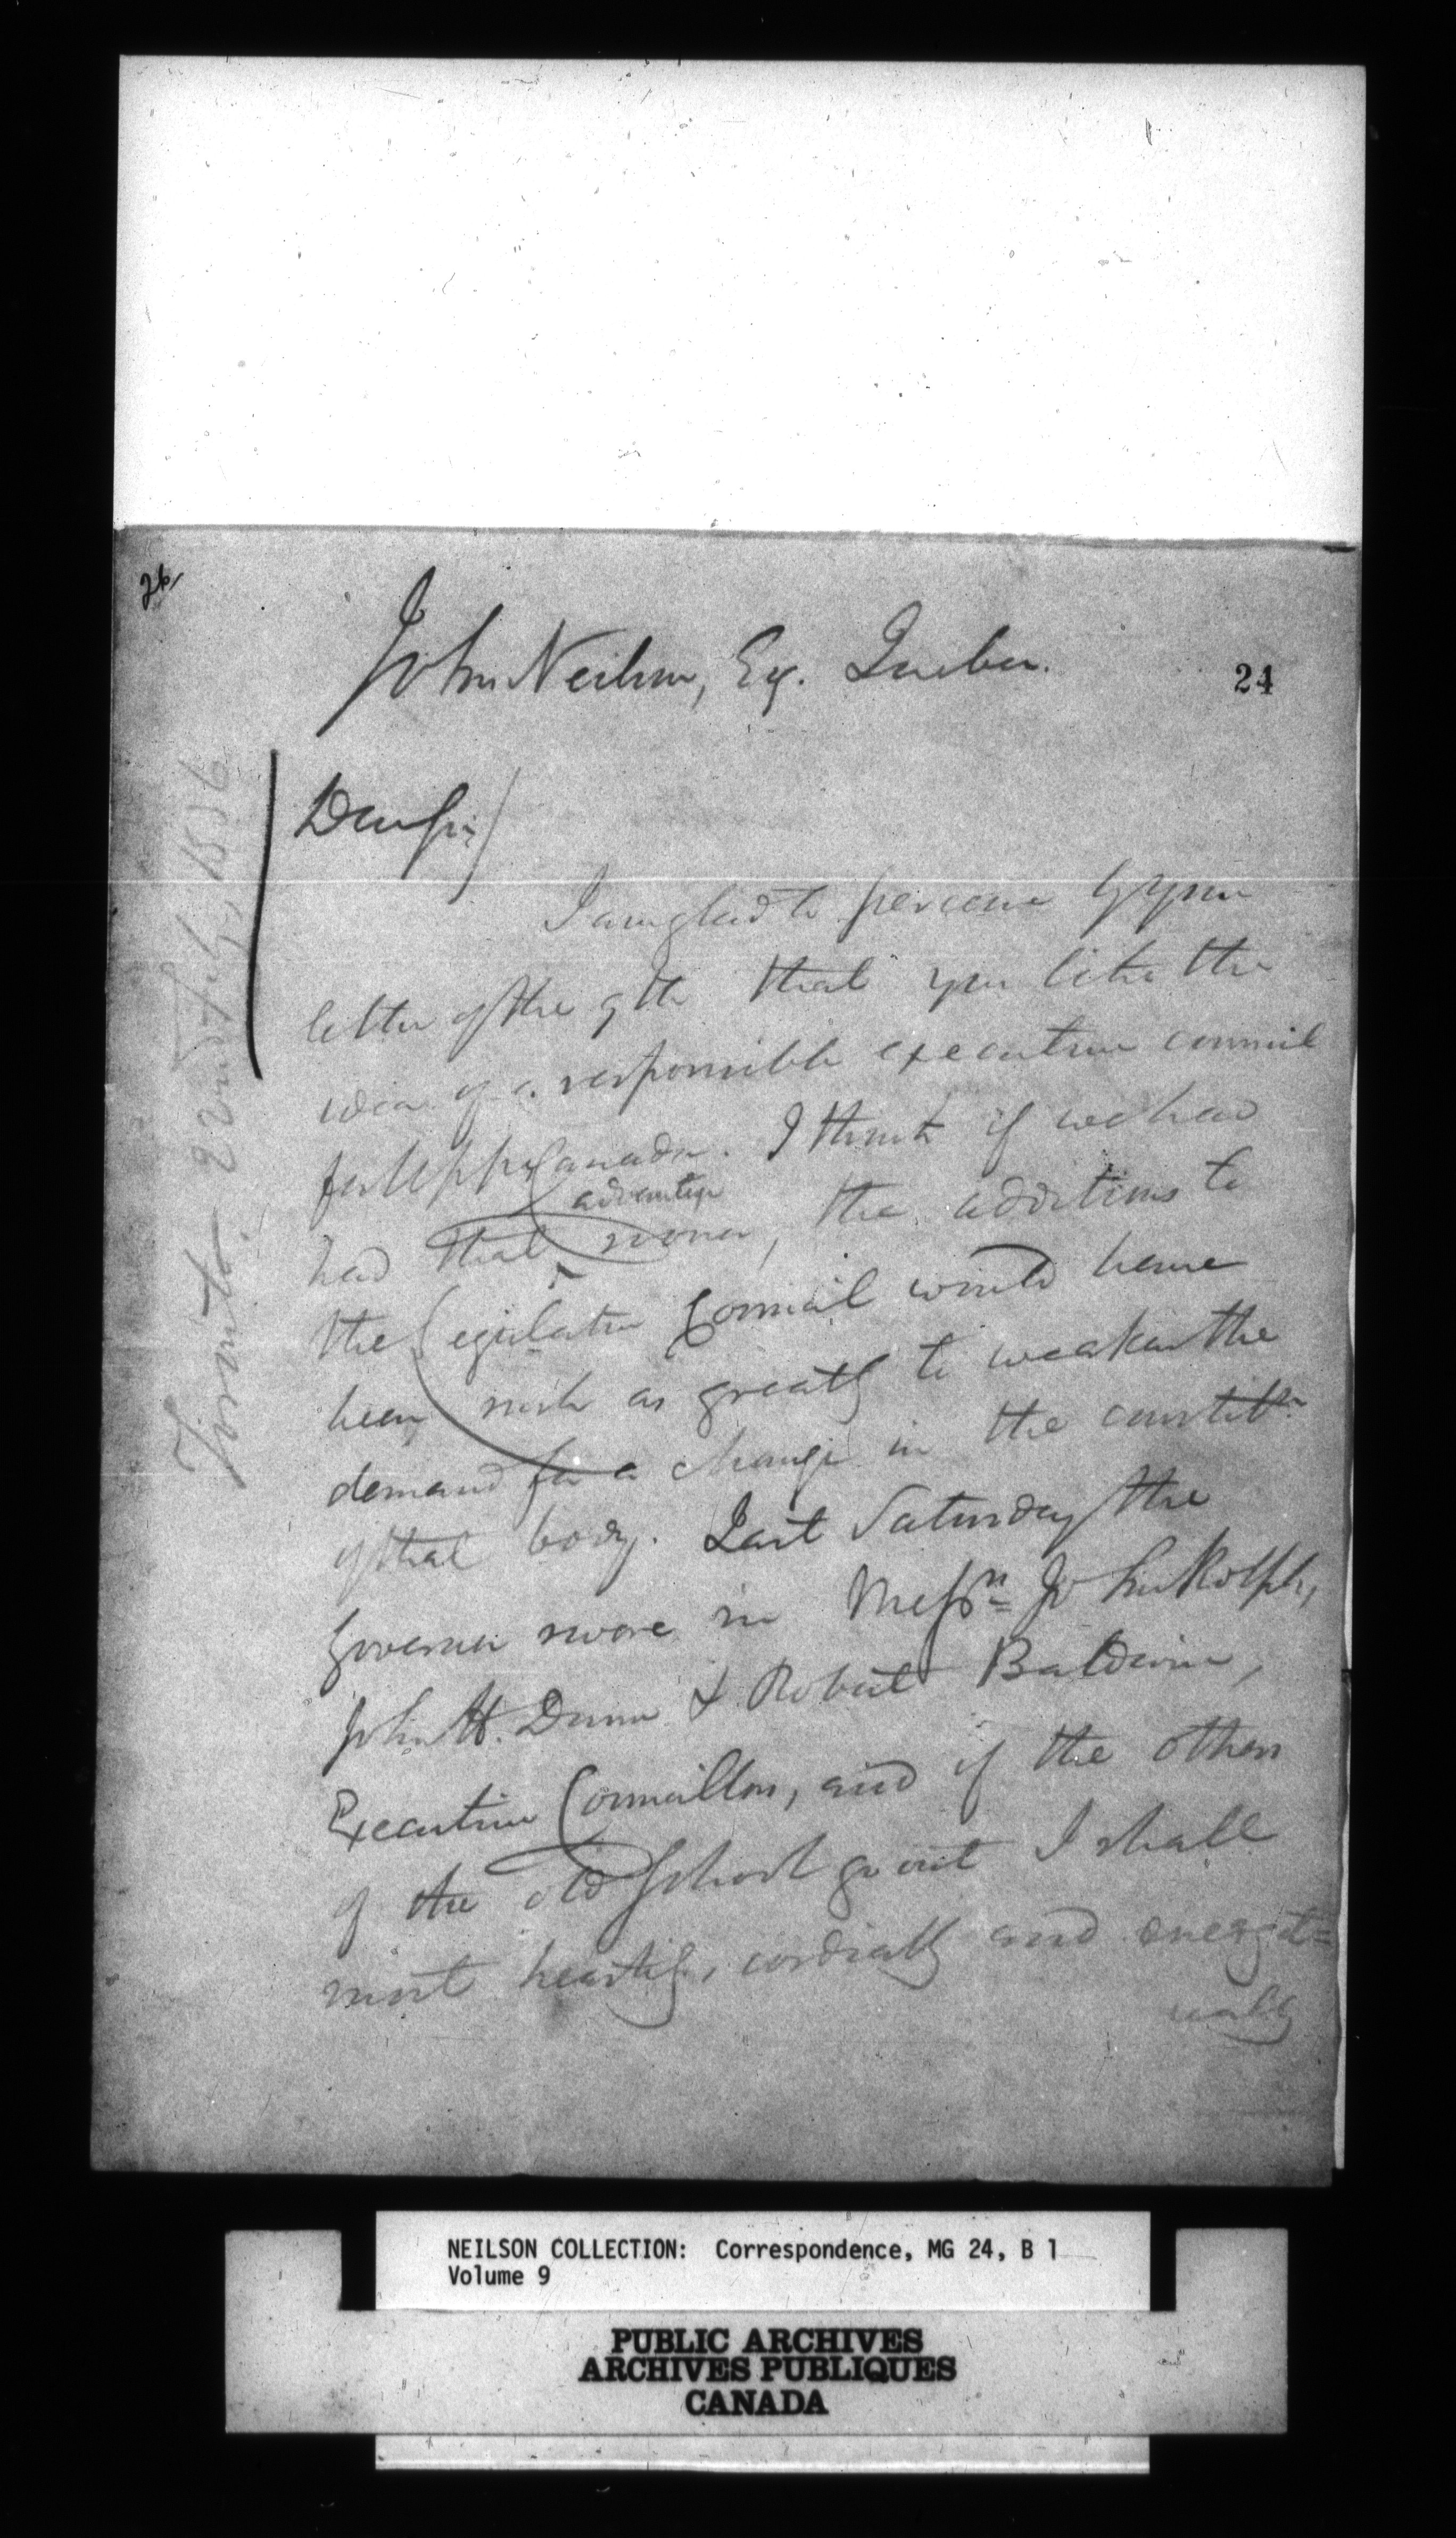 26,
John Neilson, Esq. Quebec.
24
Toronto 22nd Feby, 1836
Dear Sir,
I am glad to perceive by your
letter of the 9th that you like the
idea of a responsible executive council
for Upper Canada. I think if we had
advantage
had that sooner, the additions to
the Legislative Council would have
been such as greatly to weaken the
demand for a change in the constitn
of that body. Last Saturday the
Governor swore in Messrs John Rolph,
John H. Dunn & Robert Baldwin,
Executive Councillors, and if the others
of the old School go out I shall
most heartily, cordially and energet=
ically
NEILSON COLLECTION: Correspondence, MG 24, B 1
Volume 9
PUBLIC ARCHIVES
ARCHIVES PUBLIQUES
CANADA